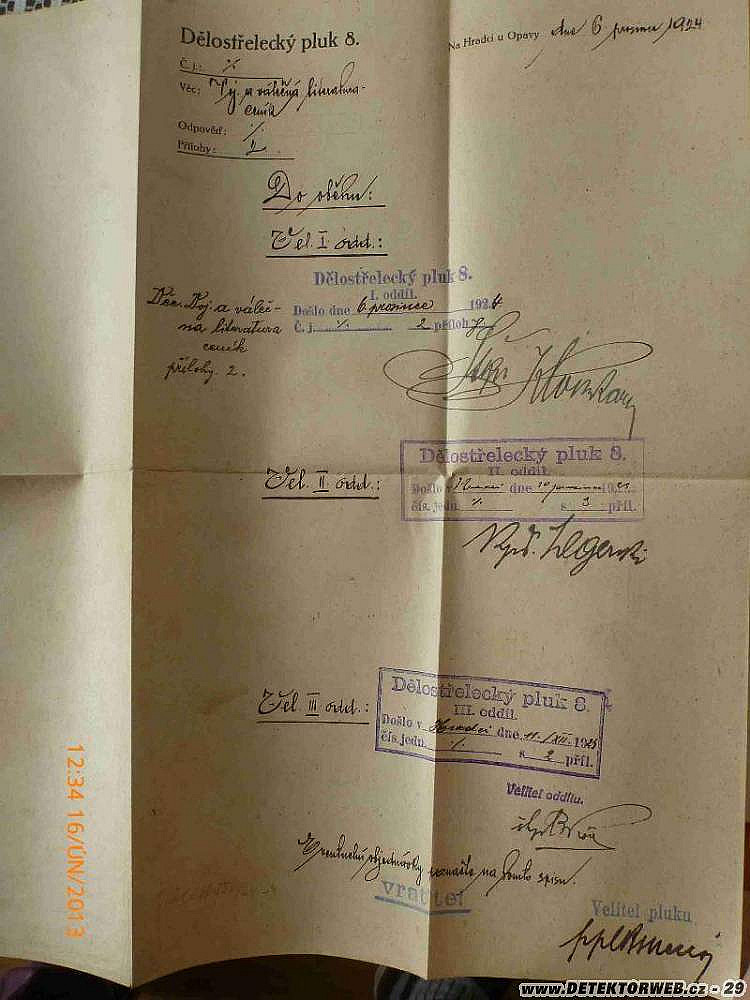 Dělostřelecký pluk 8.
Na Hradci u Opavy dne 6 prosince 1924
Č. j.: %
Věc: Voj. a válečná literatura-
ceník
Odpověď: %
Přílohy: 2
Do oběhu:
Vel. I odd.:
Dělostřelecký pluk 8.
I. oddíl.
Došlo dne 6. prosince 1924
Č. j. % 2 příloh
Věc. Voj. a váleč-
na literatura
ceník
přílohy. 2.
Vel. II odd.:
Dělostřelecký pluk 8.
II. oddíl.
Došlo v Hradci dne 10 prosince 19
čís. jedn. % s 3 příl.
Vel. III odd.:
Dělostřelecký pluk 8.
III. oddíl.
Došlo v Hradci dne 11./XII. 192
čís. jedn. % s 2 příl.
Velitel oddílu.
objednávky na tomto spisu.
vrátit
Velitel pluku
12:34 16/ÚN/2013
www.DETEKTORWEB.cz - 29